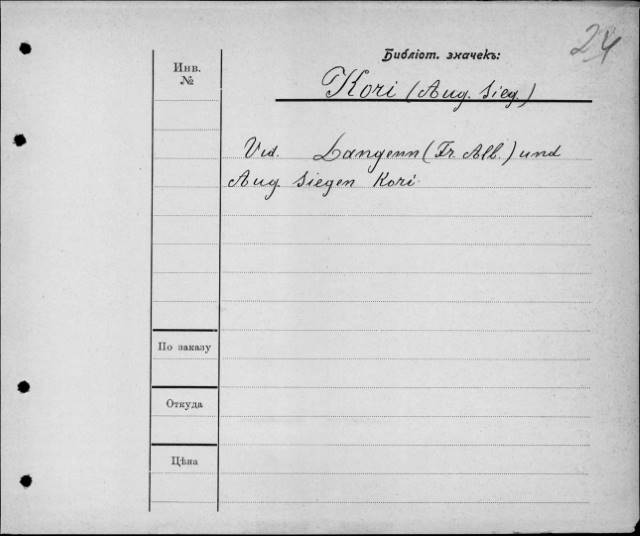 24
Библіот. значекъ:
Инв.
№
Kori (Aug. Sieg.)
Vid. Langenn (Fr. Alb.) und
Aug. Siegen Kori.
По заказу
Откуда
Цѣна